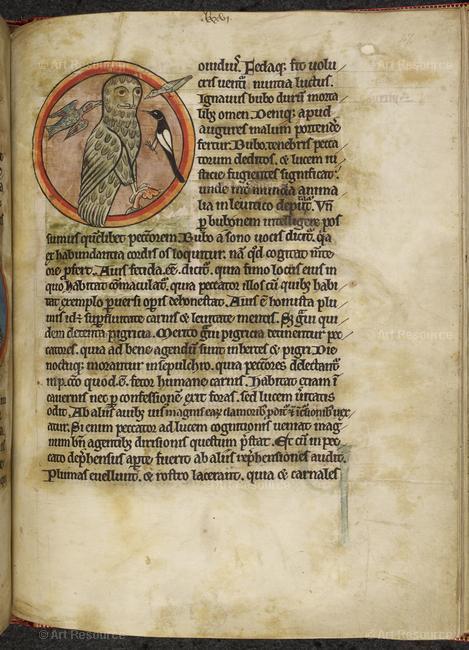 ouidius. Fedaq; fit uolu
cris uenti nuntia luctus.
Ignauus bubo dirum morta
lib; omen. Deniq; apud
augures malum portende
fertur. Bubo tenebris pecca
torum deditos. & lucem iu
sticie fugientes significat.
unde inter munda anima
lia in leuitico deputat. Vn
p bubonem intelligere pos
sumus quemlibet peccatorem. Bubo a sono uocis dicitur. qa
ex habundantia cordis os loquitur. nam quod cogitat mente
ore profert. Auis fetida esse dicitur. quia fimo locus eius in
quo habitat commaculatur. quia peccator illos cum quib; habi
tat exemplo peruersi operis dehonestat. Auis est honusta plu
mis
superfluitate carnis & leuitate mentis. Set graui qui
dem detenta pigricia. Merito graui pigricia detinentur pec
catores. quia ad bene agendum sunt inhertes & pigri. Die
noctuq; moratur in sepulchro. quia peccatores delectantur
in peccato quod est fetor humane carnis. Habitat etiam in
cauernis nec per confessionem exit foras. sed lucem ueritatis
odit. Ab aliis auib; uisa magnis earum clamorib; proditur
Si enim peccator ad lucem cognitionis ueniat mag
num bene agentib; dirisionis questum prestat. Et cum in pec
cato deprehensus aperte fuerit ab aliis reprehensiones audit.
Plumas euellunt. & rostro lacerant. quia & carnales
© Art Resource
© Art Resource
© Art Resource
© Art Resource
© Art Resource
© Art Resource